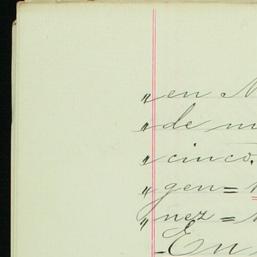 „ en
„ de
„ cinco.
„ gen=
„ nez=
- En